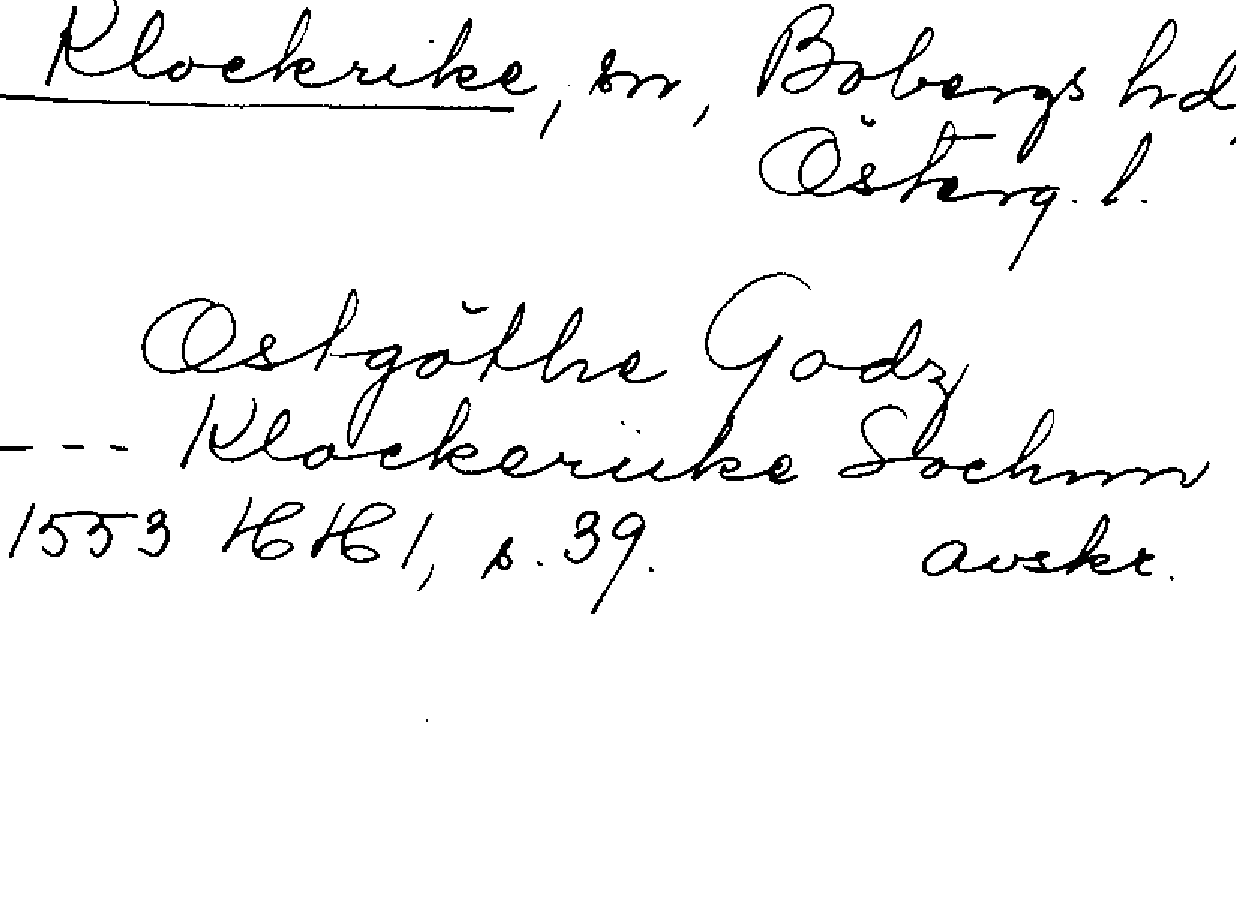 Klockrike, sn, Bobergs hd,
Österg. l.
Ostgöthe Godz
--- Klockeriike Sochnn
1553 HH 1, s. 39. avskr.